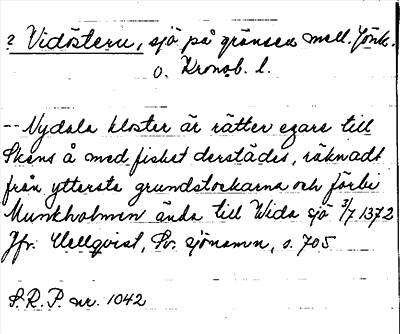 ? Vidöstern, sjö på gränsen mell. Jönk.
o. Kronob. l.
-- Nydala kloster är rätter egare till
Skens å med fisket derstädes, räknadt
från yttersta grundstockarna och förbi
Munkholmen ända till Wida sjö 3/7 1372
Jfr. Hellqvist, Sv. sjönamn, s. 705
S.R.P. nr. 1042